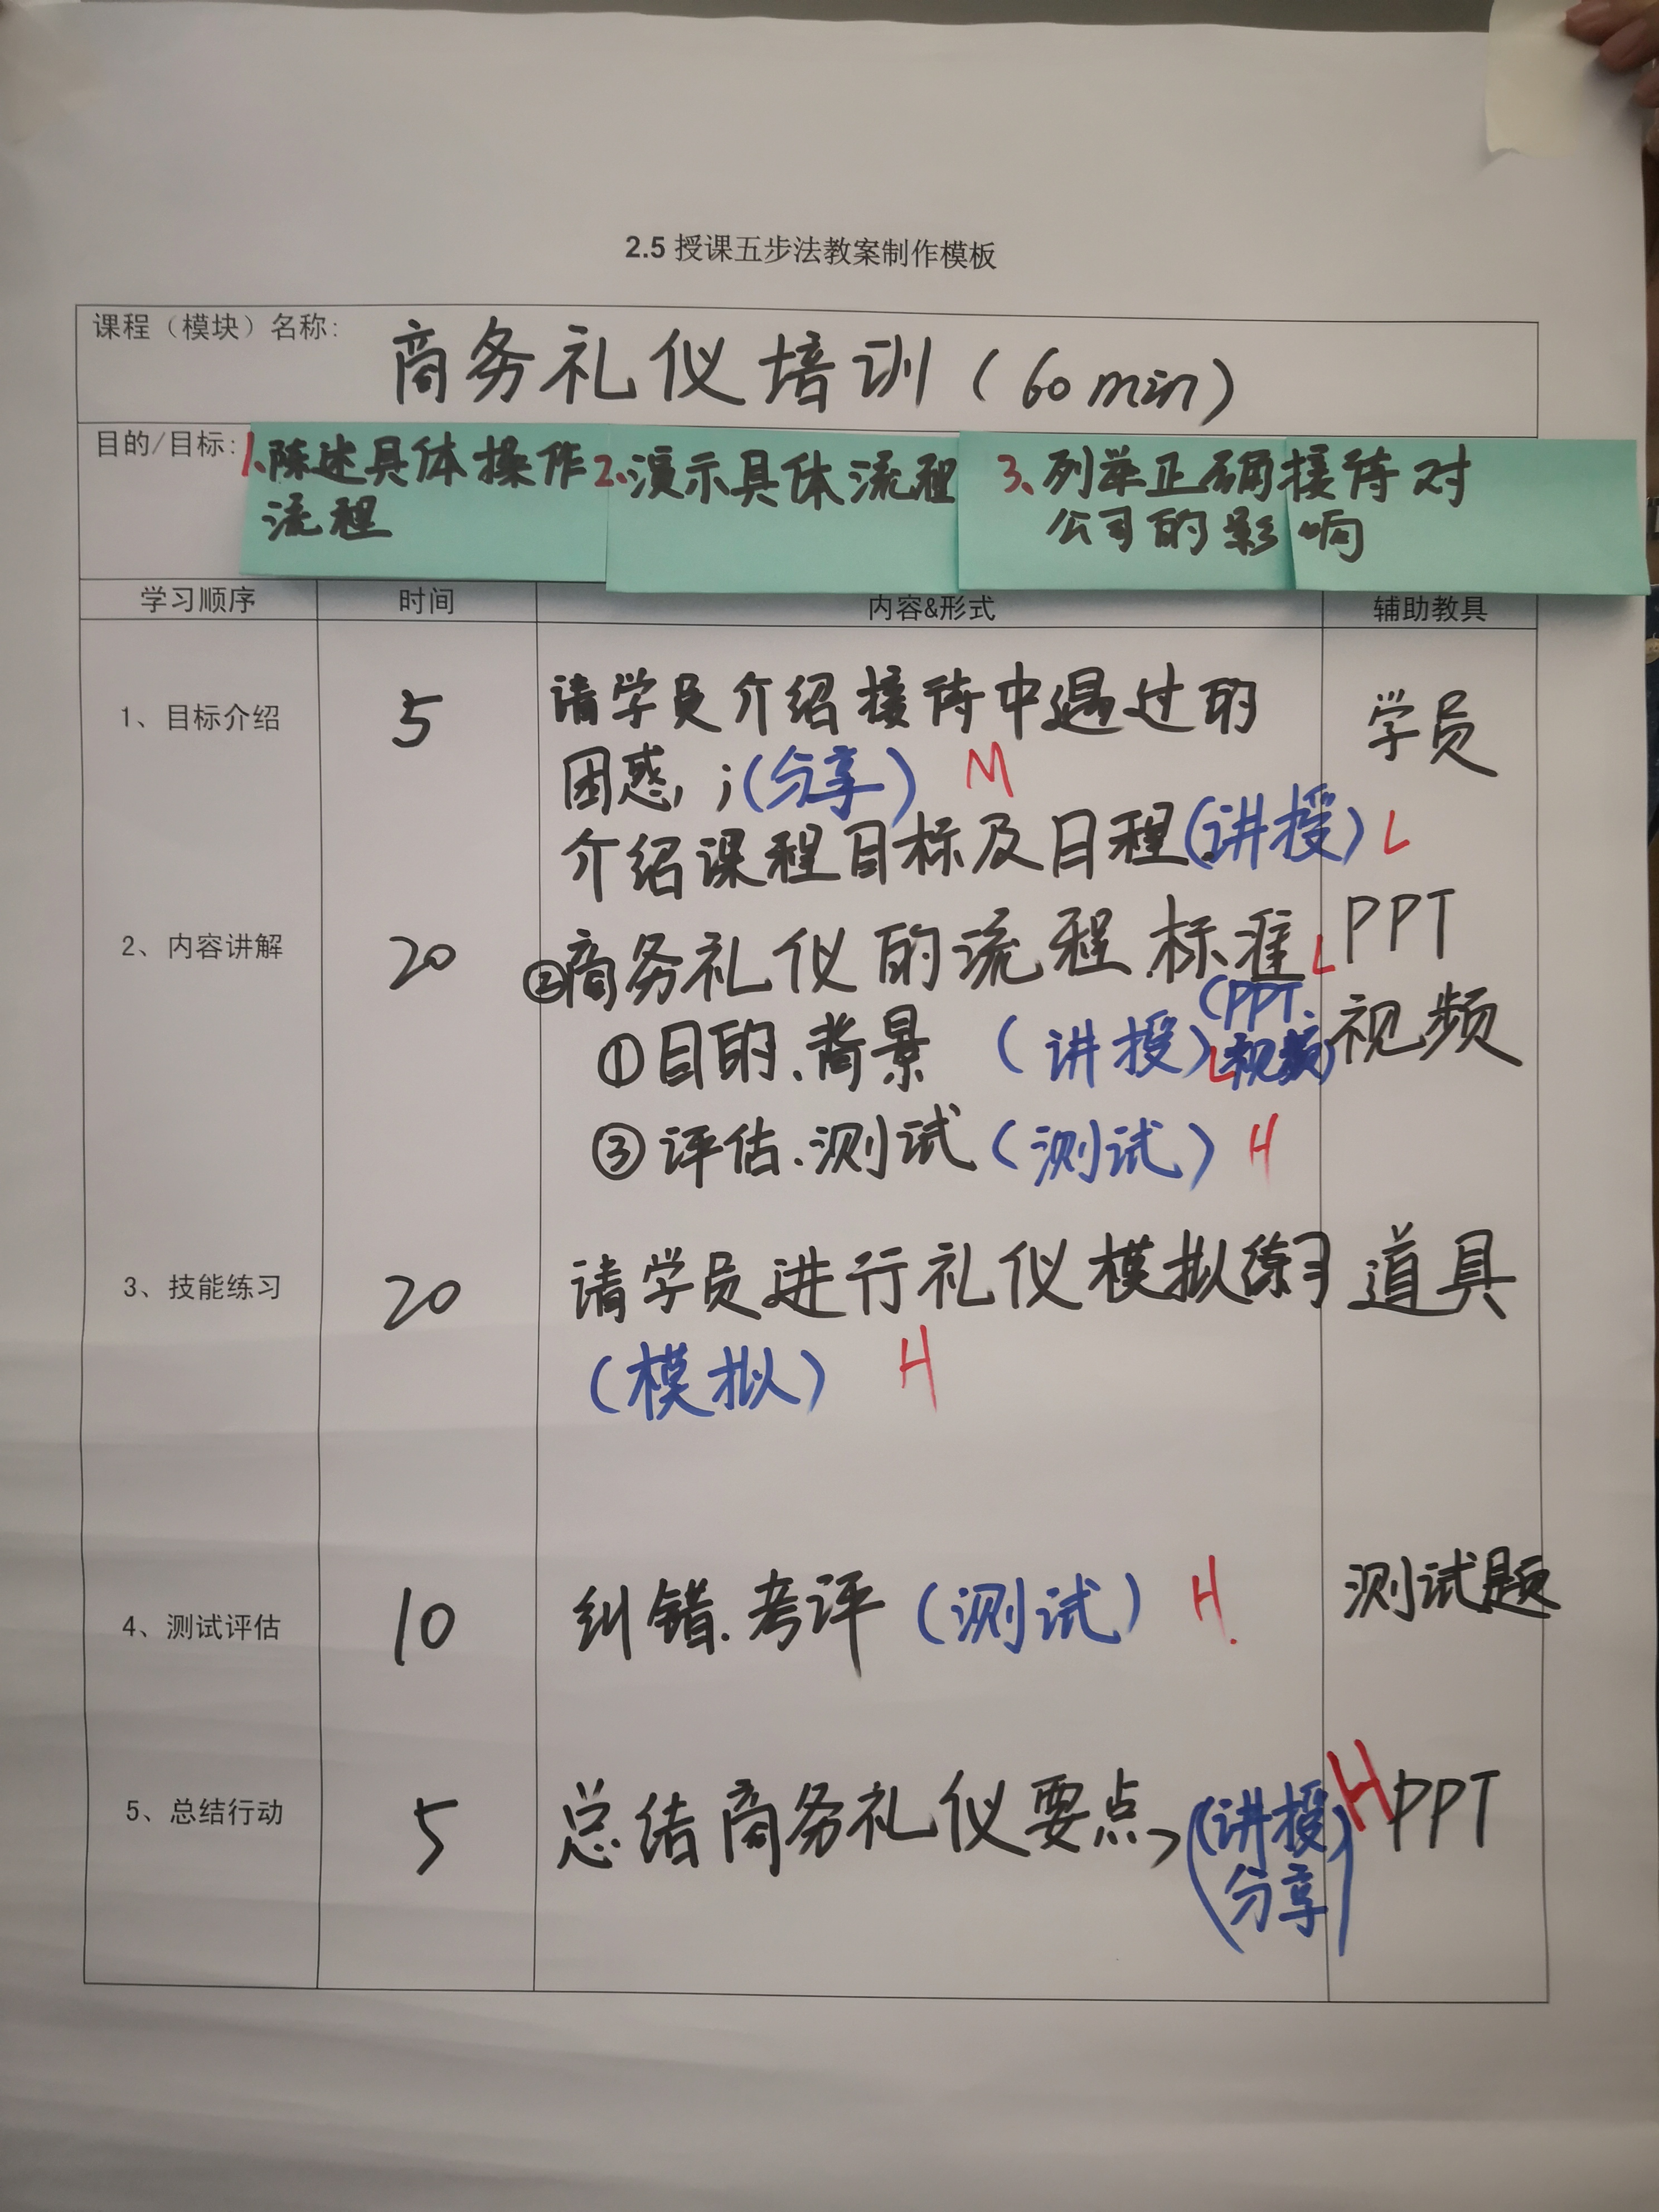 2.5 授课五步法教案制作模板
课程（模块）名称:
商务礼仪培训（60min）
目的/目标:
1、陈述具体操作
流程
2、演示具体流程
3、列举正确接待对
公司的影响
学习顺序 时间 内容&形式 辅助教具
1、目标介绍 5 请学员介绍接待中遇过的 学员
困惑，;（分享） M
介绍课程目标及日程（讲授） L
2、内容讲解 20 ②商务礼仪的流程.标准 L PPT
（PPT.
①目的.背景 （讲授）L 视频） 视频
③评估.测试（测试） H
3、技能练习 20 请学员进行礼仪模拟练习 道具
（模拟） H
4、测试评估 10 纠错.考评（测试） H. 测试题
5、总结行动 5 总结商务礼仪要点,（讲授 H PPT
分享）